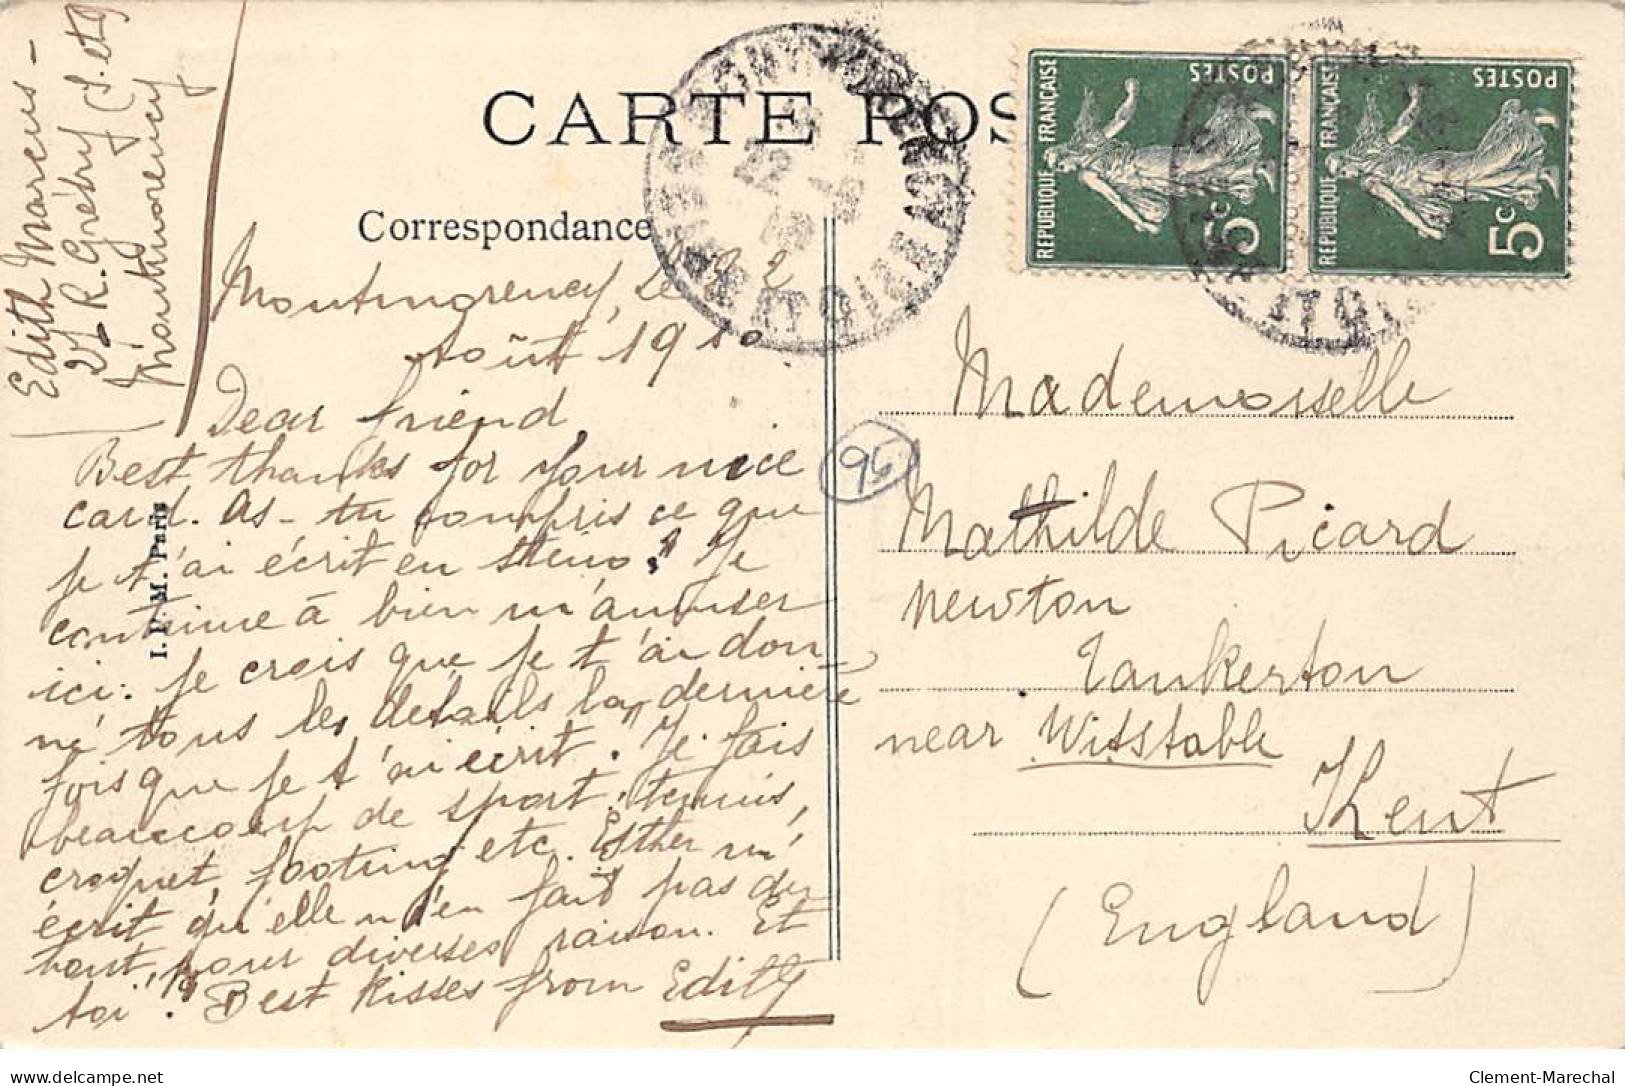 Edith Marcus -
27 R. Grétry (S. et O)
Montmorency
CARTE POS
Correspondance
RÉPUBLIQUE FRANÇAISE
POSTES
5c
RÉPUBLIQUE FRANÇAISE
POSTES
5c
Montmorency, le 2
Août 1910.
Dear friend,
Best thanks for your nice
card. As-tu compris ce que
je t'ai écrit en sténo? Je
continue à bien m'amuser
ici. Je crois que je t'ai don-
né tous les détails la dernière
fois que je t'ai écrit. Je fais
beaucoup de sport: tennis,
croquet, footing etc. Esther m'
écrit qu'elle n'en fait pas du
tout, pour diverses raison. Et
toi? Best kisses from Edith
I. P. M. Paris
95
Mademoiselle
Mathilde Picard
Newton
Tankerton
near Witstable
Kent
(England)
delcampe.net
Clement-Marechal